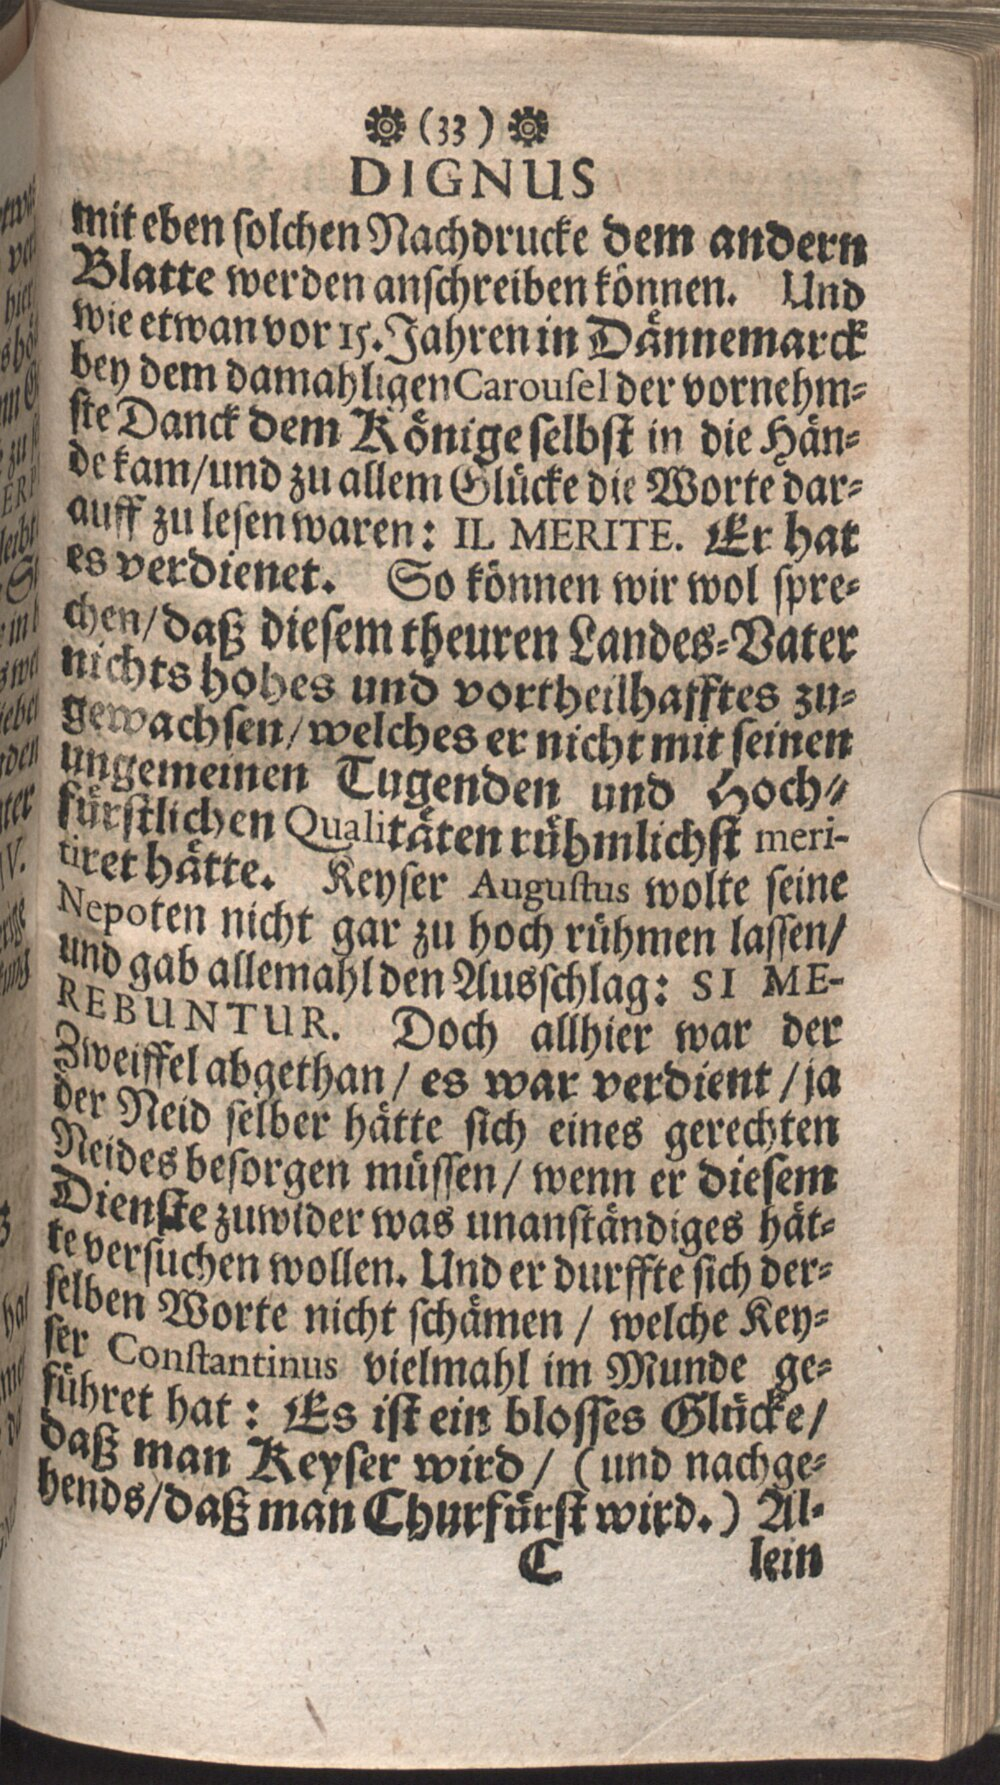 (33)
DIGNUS
mit eben solchen Nachdrucke dem andern
Blatte werden anschreiben können. Und
wie etwan vor 15. Jahren in Dännemarck
bey dem damahligen Carousel der vornehm-
ste Danck dem Könige selbst in die Hän-
de kam/ und zu allem Glücke die Worte dar-
auff zu lesen waren: IL MERITE. Er hat
es verdienet. So können wir wol spre-
chen/ daß diesem theuren Landes-Vater
nichts hohes und vortheilhafftes zu-
gewachsen/ welches er nicht mit seinen
ungemeinen Tugenden und Hoch-
fürstlichen Qualitäten rühmlichst meri-
tiret hätte. Keyser Augustus wolte seine
Nepoten nicht gar zu hoch rühmen lassen/
und gab allemahl den Ausschlag: SI ME-
REBUNTUR. Doch allhier war der
Zweiffel abgethan / es war verdient / ja
der Neid selber hätte sich eines gerechten
Neides besorgen müssen / wenn er diesem
Dienste zuwider was unanständiges hät-
te versuchen wollen. Und er durffte sich der-
selben Worte nicht schämen / welche Key-
ser Constantinus vielmahl im Munde ge-
führet hat: Es ist ein blosses Glücke/
daß man Keyser wird / (und nachge-
hends/ daß man Churfürst wird.) Al-
C lein